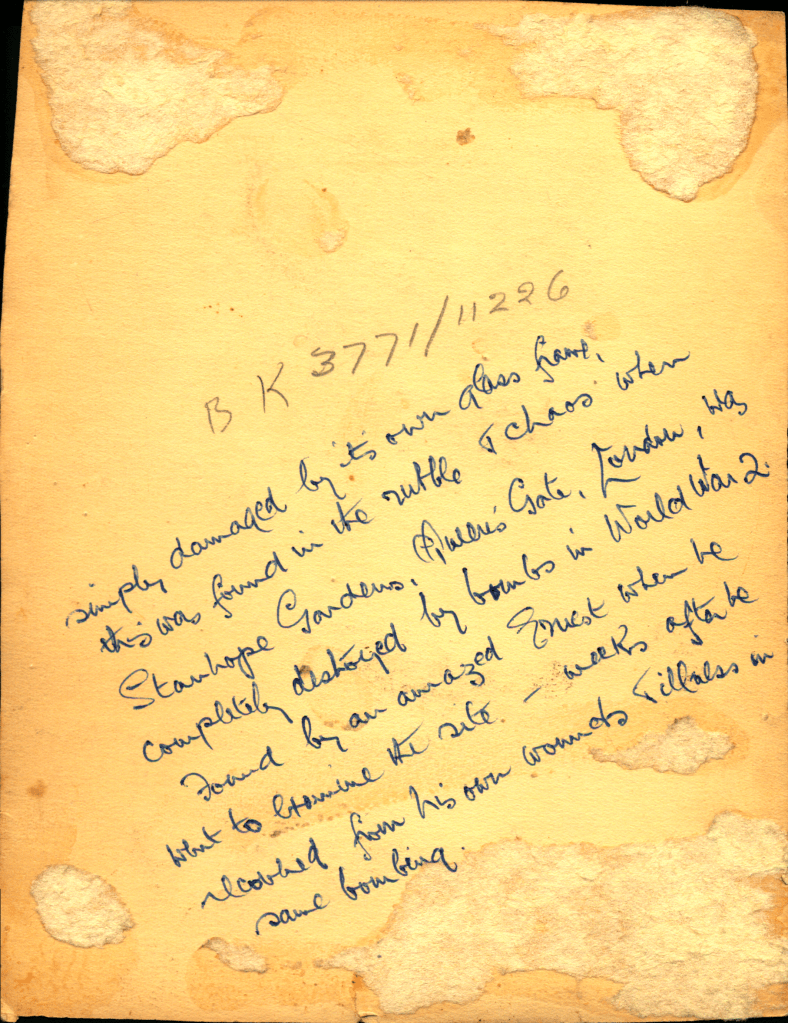 BK 3771/11226
simply damaged by its own glass frame,
this was found in the rubble & chaos when
Stanhope Gardens, Queen's Gate, London, was
completely destroyed by bombs in World War 2.
Found by an amazed Ernest when he
went to examine the site - weeks after he
recovered from his own wounds & illness in
same bombing.